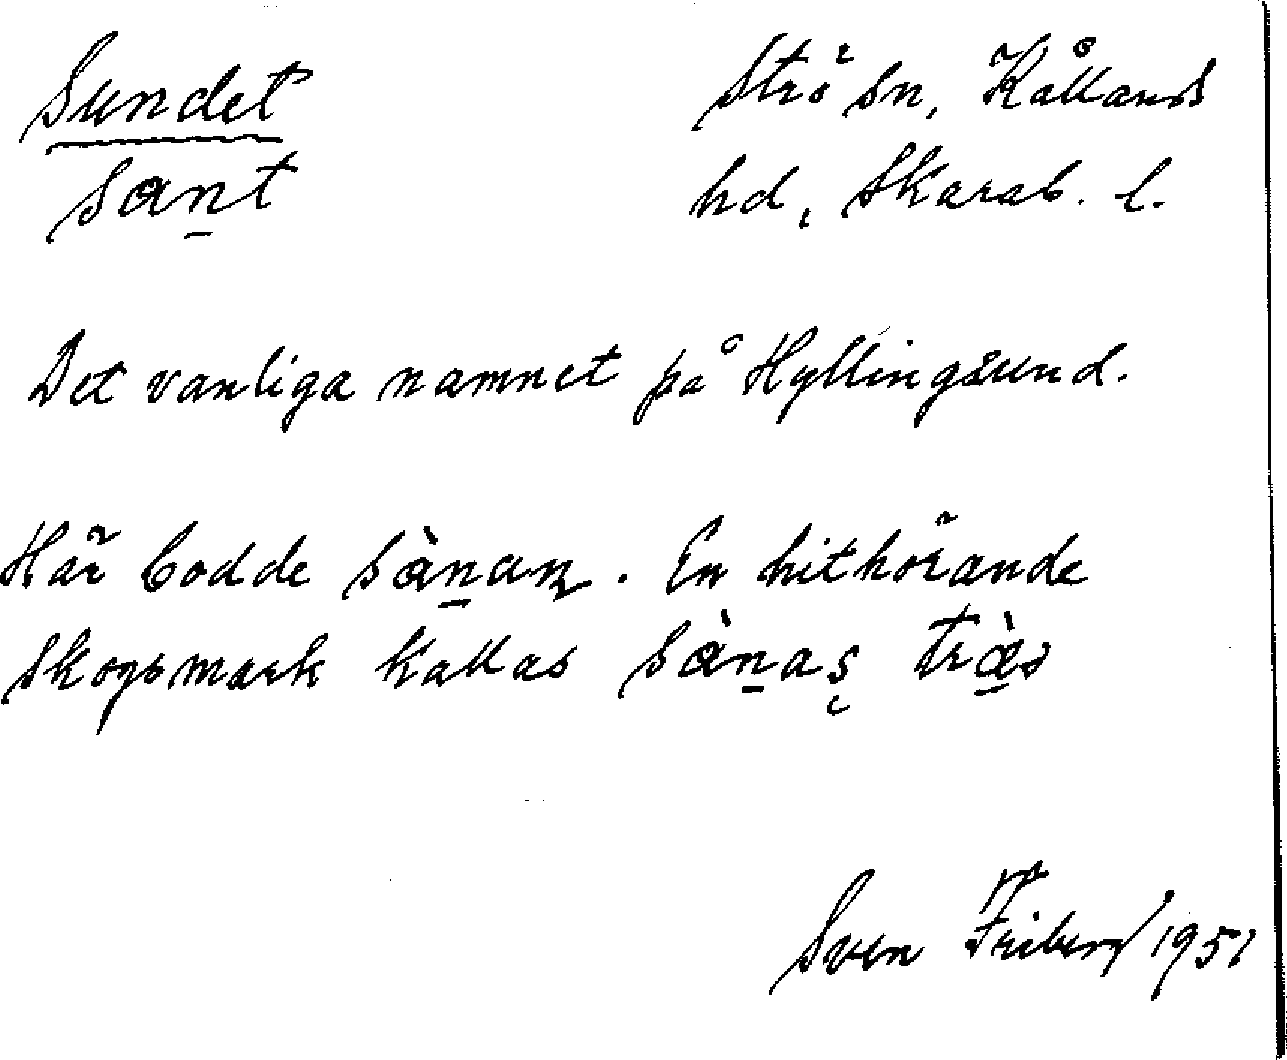 Sundet
Strö sn, Kållands
sant
hd, Skarab. l.
Det vanliga namnet på Hyllingsund.
Här bodde sànaɳ. En hithörande
skogsmark kallas sànaş träs
Sven Friberg 1951